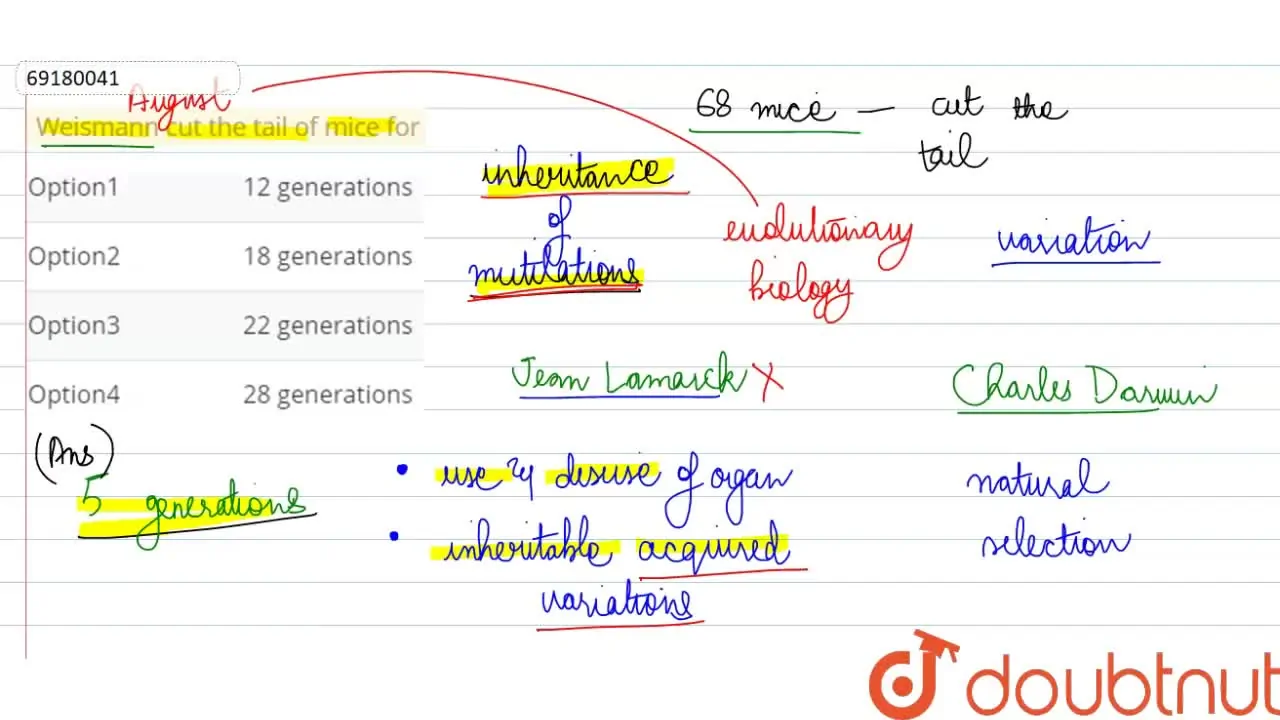 69180041
August
Weismann cut the tail of mice for
Option1 12 generations
Option2 18 generations
Option3 22 generations
Option4 28 generations
(Ans)
5 generations
inheritance
of
mutilations
68 mice — cut the
tail
evolutionary
biology
variation
Jean Lamarck X
• use & disuse of organ
• inheritable acquired
variations
Charles Darwin
natural
selection
doubtnut